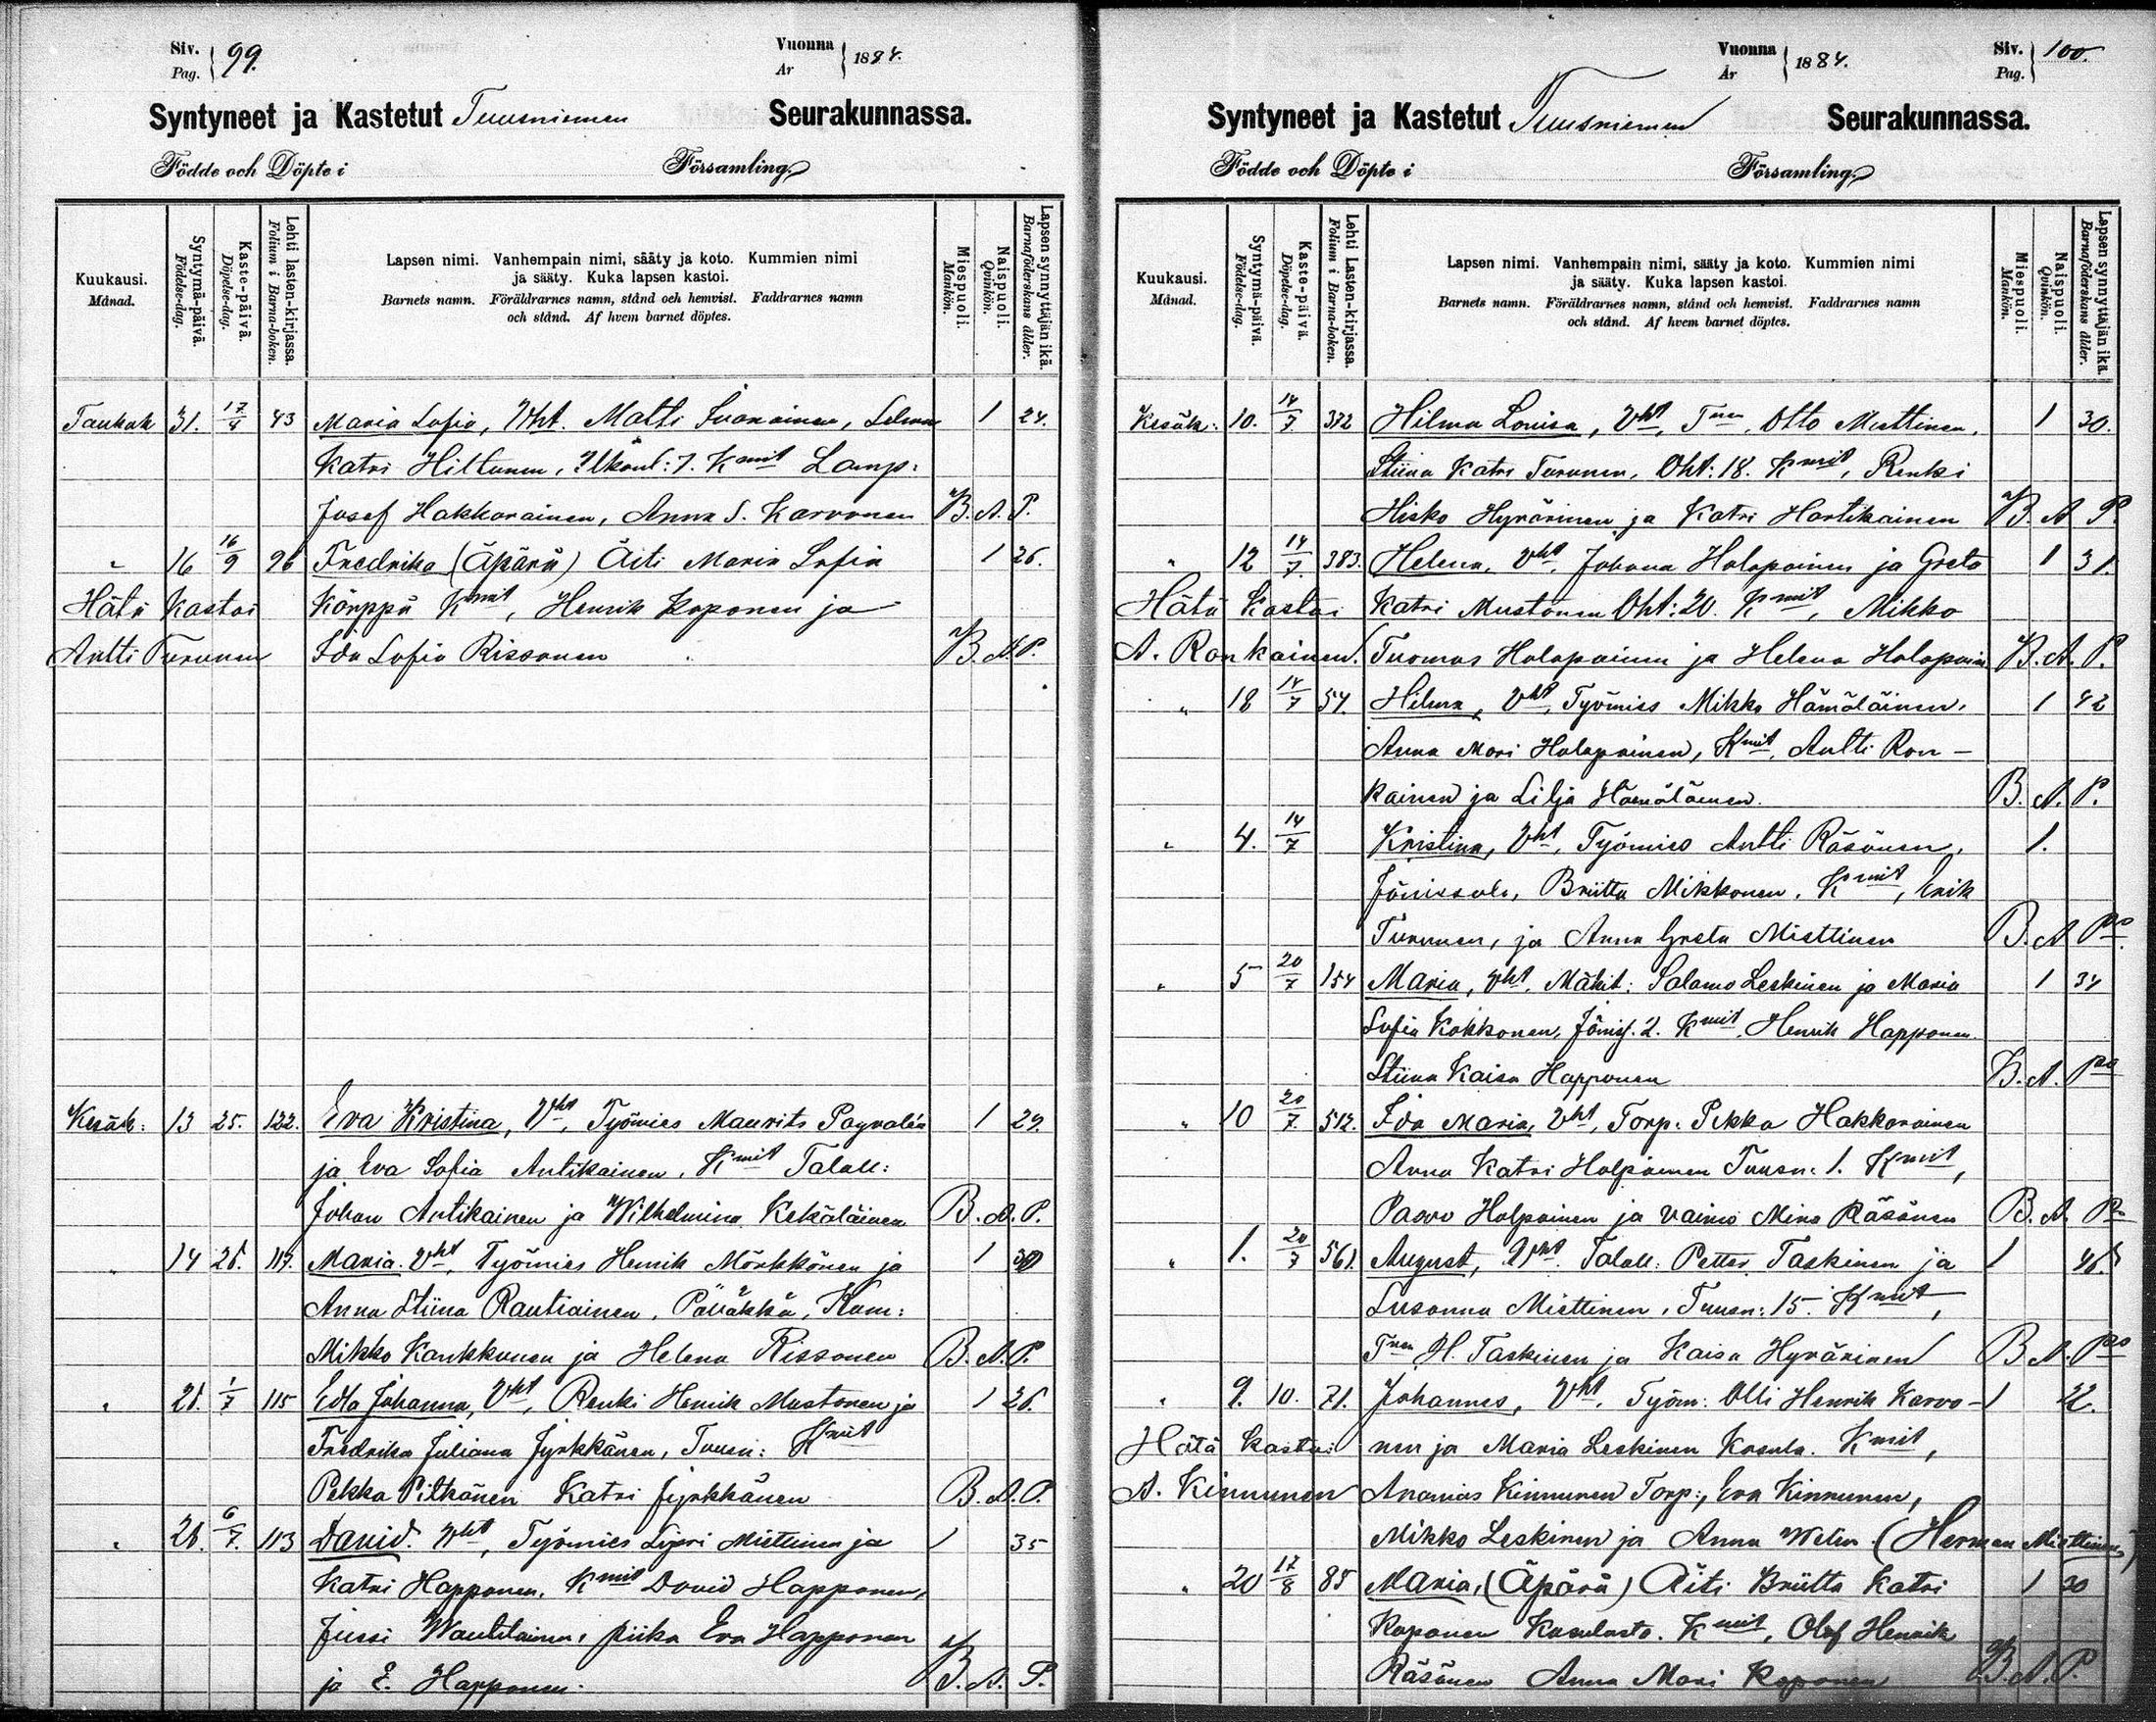 Siv. Pag. 99. Vuonna År 1884.
Syntyneet ja Kastetut Tuusniemen Seurakunnassa.
Födde och Döpte i Församling.
Kuukausi. Månad.
Syntymä-päivä. Födelse-dag.
Kaste-päivä. Döpelse-dag.
Lehti lasten-kirjassa. Folium i Barna-boken.
Lapsen nimi. Vanhempain nimi, sääty ja koto. Kummien nimi
ja sääty. Kuka lapsen kastoi.
Barnets namn. Föräldrarnes namn, stånd och hemvist. Faddrarnes namn
och stånd. Af hvem barnet döptes.
Miespuoli. Mankön.
Naispuoli. Qvinkön.
Lapsen synnyttäjän ikä. Barnaföderskans ålder.
Toukok 31. 17/4 43 Maria Sofia, Vht. Matti 1 24.
Katri Hiltunen, 7. Kmit Lamp:
Josef Hakkarainen, Anna S. Karvonen B. A. P.
" 16 16/9 96 Fredrika (Äpärä) Äiti Maria Sofia 1 26.
Hätä Kastoi Körppä Kmit, Henrik Koponen ja
Antti Turunen Ida Sofia Rissanen B. A. P.
Kesäk: 13 25. 122. Eva Kristina, Vht, Työmies Maurits 1 29.
ja Eva Sofia Antikainen. Kmit Talall:
Johan Antikainen ja Wilhelmina Kekäläinen B. A. P.
" 14 26. 117. Maria. Vht, Työmies Henrik Mörkkönen ja 1
Anna Stiina Rautiainen, Kum:
Mikko Kankkunen ja Helena Rissanen B. A. P.
" 21. 1/7 115 Edla Johanna, Vht, Renki Henrik Mustonen ja 1 26.
Fredrika Juliana Jyrkkänen, Tuusn: Kmit
Pekka Pitkänen Katri Jyrkkänen B. A. P.
" 21. 6/7. 113 David. Vht, Työmies Miettinen ja 1 35
Katri Happonen. Kmit David Happonen,
Jussi piika Eva Happonen
ja E. Happonen. B. A. P.
Vuonna År 1884. Siv. Pag. 100.
Syntyneet ja Kastetut Tuusniemen Seurakunnassa.
Födde och Döpte i Församling.
Kuukausi. Månad.
Syntymä-päivä. Födelse-dag.
Kaste-päivä. Döpelse-dag.
Lehti Lasten-kirjassa. Folium i Barna-boken.
Lapsen nimi. Vanhempain nimi, sääty ja koto. Kummien nimi
ja sääty. Kuka lapsen kastoi.
Barnets namn. Föräldrarnes namn, stånd och hemvist. Faddrarnes namn
och stånd. Af hvem barnet döptes.
Miespuoli. Mankön.
Naispuoli. Qvinkön.
Lapsen synnyttäjän ikä. Barnaföderskans ålder.
Kesäk: 10. 14/7. 372 Hilma Lovisa, Vht, Tnen. Otto Miettinen, 1 30.
Stiina Katri Turunen, Oht: 18. Kmit, Renki
Hisko Hyvärinen ja Katri Hartikainen B. A P.
" 12 14/7. 383. Helena, Vht, Johana Holopainen ja Greta 1 31.
Hätä Kastoi Katri Mustonen Oht: 20. Kmit, Mikko
A. Ronkainen. Tuomas Holopainen ja Helena B. A. P.
" 18 14/7 54. Hilma, Vht, Työmies Mikko Hämäläinen. 1 42
Anna Mari Holopainen, Kmit, Antti Ron-
kainen ja Lilja Hämäläinen. B. A. P.
" 4. 14/7 Kristina, Vht, Työmies Antti Räsänen, 1.
Briitta Mikkonen. Kmit, Erik
Turunen, ja Anna Greta Miettinen B. A Po.
" 5 20/7 154 Maria, Vht. Mäkit: Salamo Leskinen ja Maria 1 34
Sofia Kokkonen, 2. Kmit. Henrik Happonen.
Stiina Kaisa Happonen B. A. Po
" 10 20/7 512. Ida Maria, Vht, Torp: Pekka Hakkarainen
Anna Katri Tuusn: 1. Kmit,
Paavo ja vaimo Mina Räsänen B. A. Po
" 1. 20/7 561. August, Vht. Talall: Petter Taskinen ja 1 46.
Susanna Miettinen, Tuusn: 15. Kmit,
Tnen H. Taskinen ja Kaisa Hyvärinen B A. Po
" 9. 10. 71. Johannes, Vht. Työm: Olli Henrik Karvo- 1 22.
Hätä kastoi nen ja Maria Leskinen Kosula. Kmit,
A. Kinnunen Ananias Kinnunen Torp:, Eva Kinnunen,
Mikko Leskinen ja Anna (Herman Miettinen)
" 20 17/8 85 Maria, (Äpärä) Äiti Briitta Katri 1 30
Koponen Kosulasta. Kmit, Olof Henrik
Räsänen Anna Mari Koponen B. A. P.